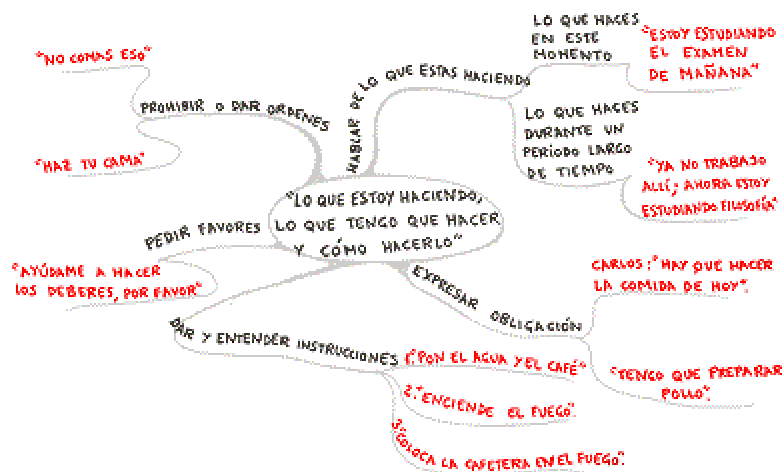 "LO QUE ESTOY HACIENDO,
LO QUE TENGO QUE HACER
Y CÓMO HACERLO"
PROHIBIR O DAR ORDENES
"NO COMAS ESO"
"HAZ TU CAMA"
HABLAR DE LO QUE ESTAS HACIENDO
LO QUE HACES
EN ESTE
MOMENTO
"ESTOY ESTUDIANDO
EL EXAMEN
DE MAÑANA"
LO QUE HACES
DURANTE UN
PERÍODO LARGO
DE TIEMPO
"YA NO TRABAJO
ALLÍ; AHORA ESTOY
ESTUDIANDO FILOSOFÍA"
PEDIR FAVORES
"AYÚDAME A HACER
LOS DEBERES, POR FAVOR"
EXPRESAR OBLIGACIÓN
CARLOS: "HAY QUE HACER
LA COMIDA DE HOY".
"TENGO QUE PREPARAR
POLLO".
DAR Y ENTENDER INSTRUCCIONES
1."PON EL AGUA Y EL CAFÉ"
2."ENCIENDE EL FUEGO".
3."COLOCA LA CAFETERA EN EL FUEGO".